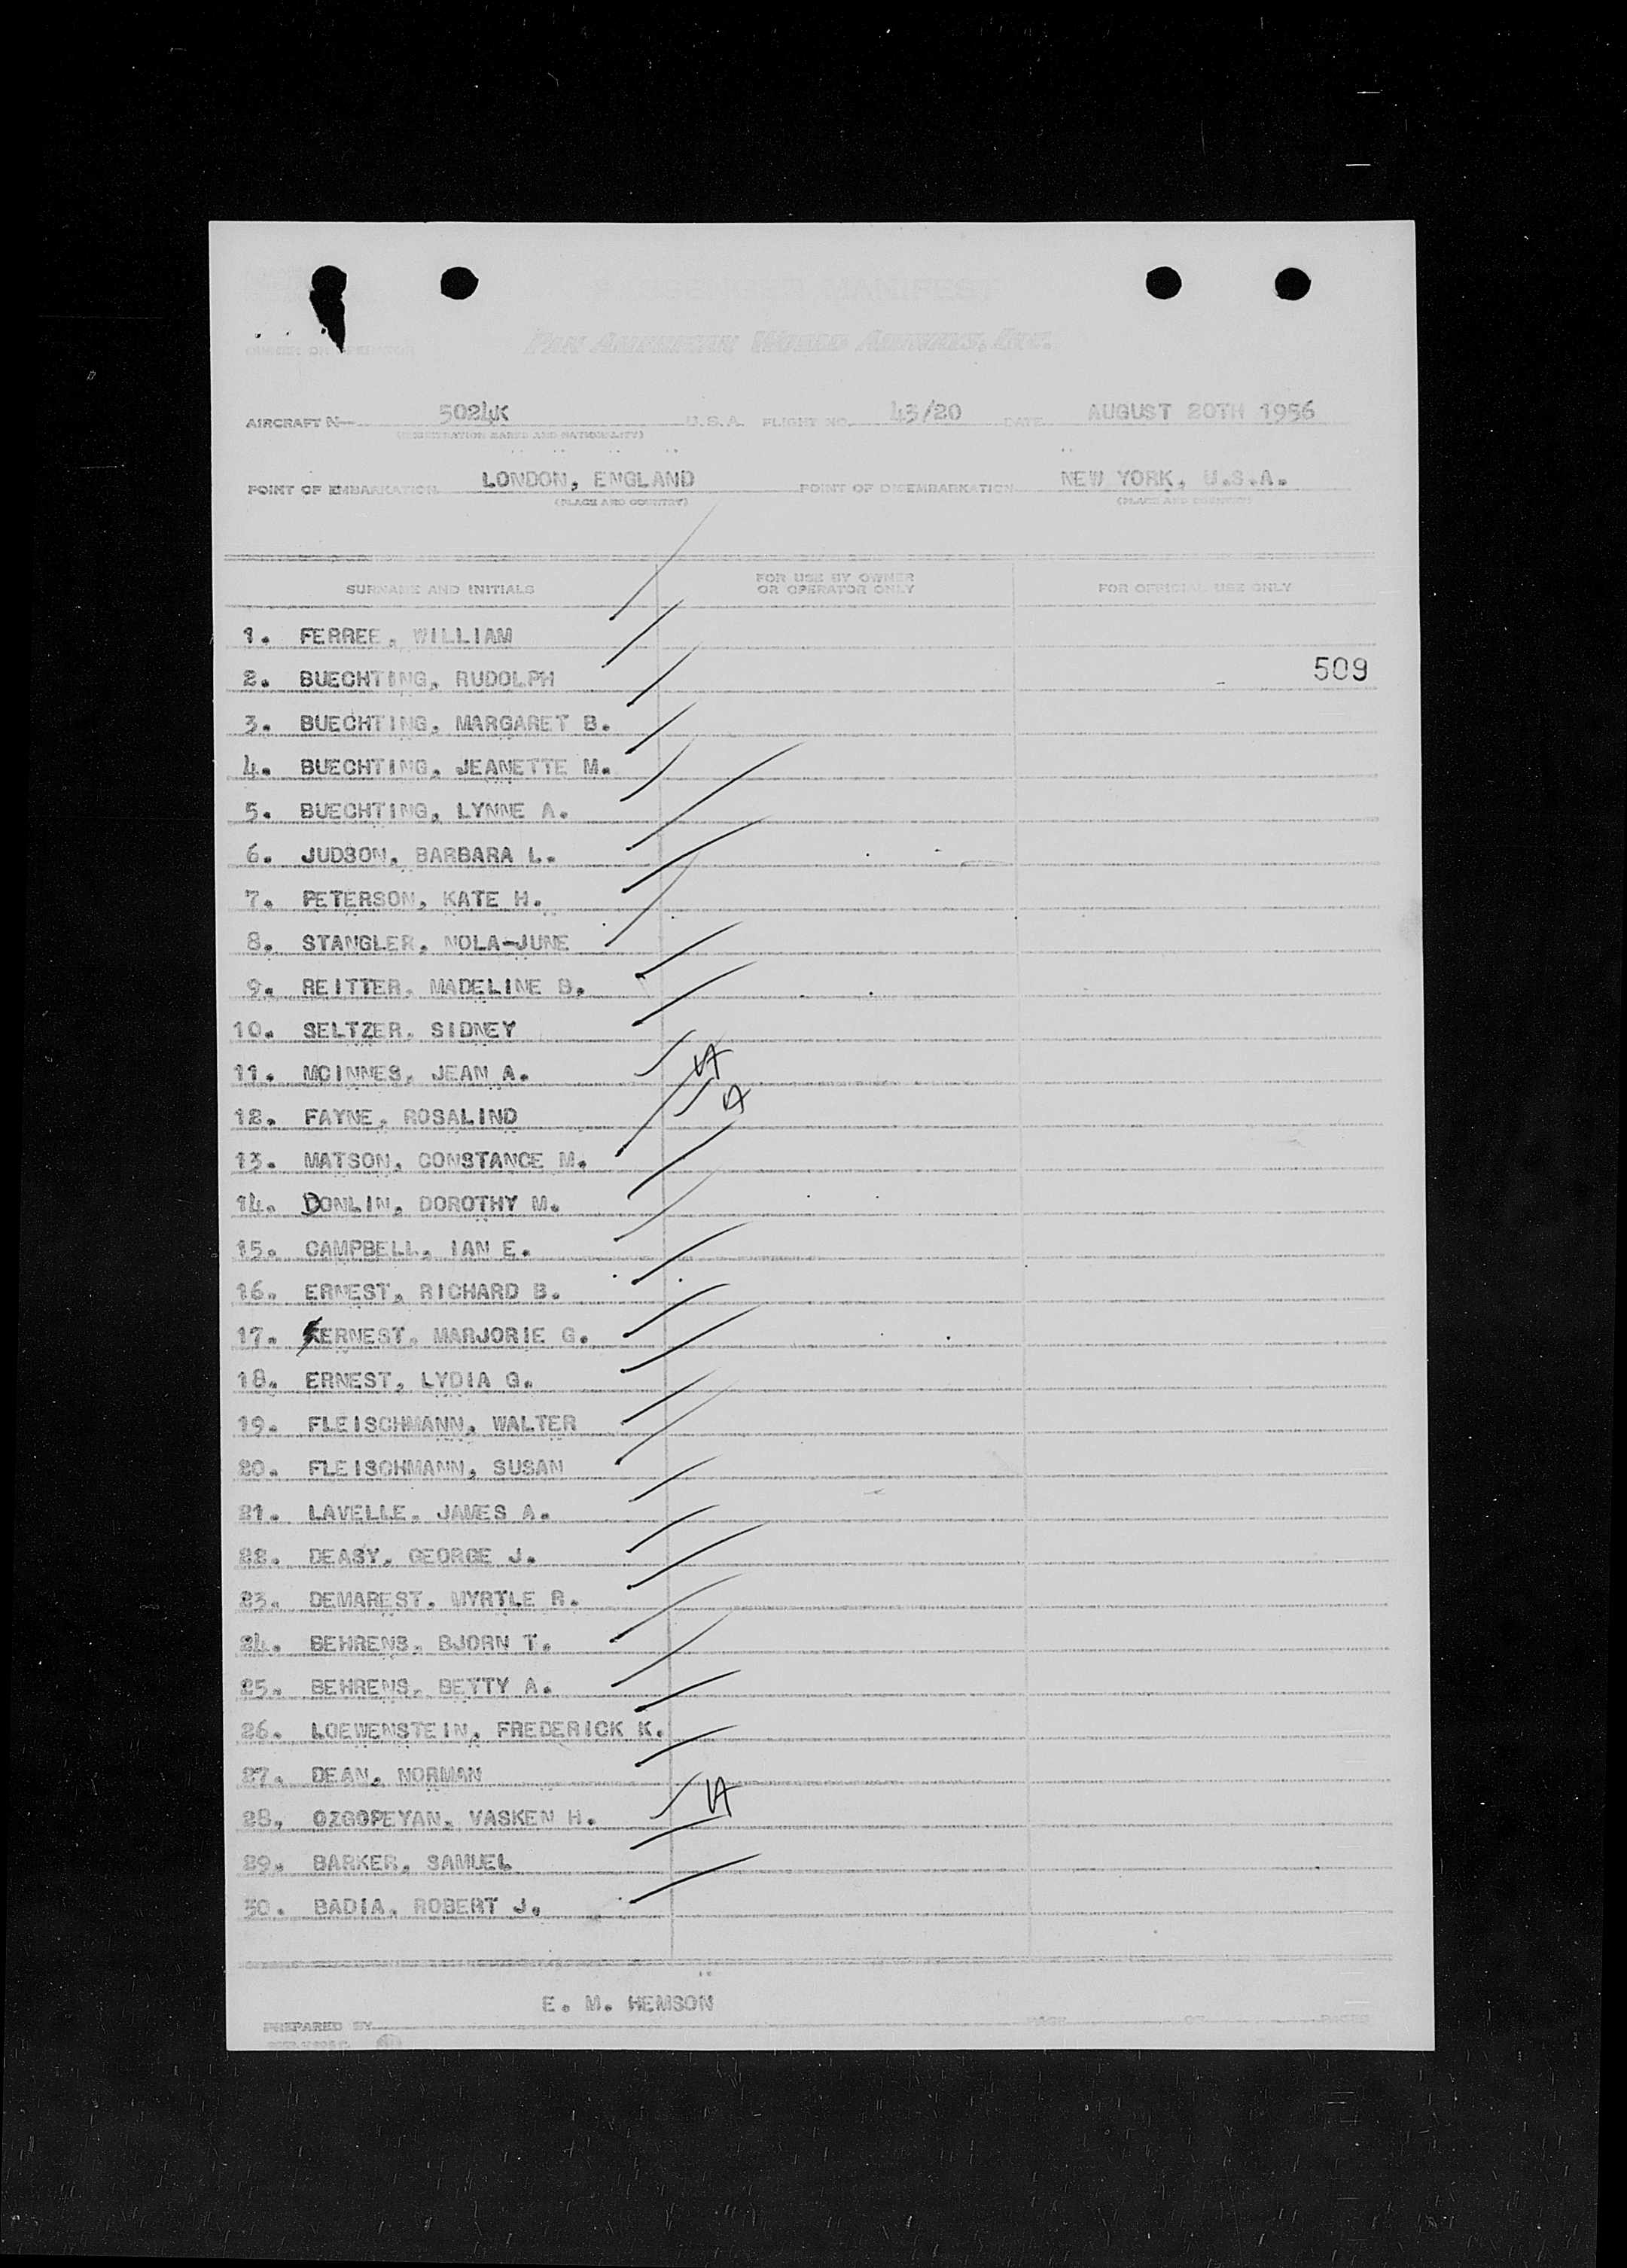 PASSENGER MANIFEST
OWNER OR OPERATOR PAN AMERICAN WORLD AIRWAYS, INC.
AIRCRAFT N— 5024K U.S.A. FLIGHT NO. 43/20 DATE AUGUST 20TH 1956
(REGISTRATION MARKS AND NATIONALITY)
POINT OF EMBARKATION LONDON, ENGLAND POINT OF DISEMBARKATION NEW YORK, U.S.A.
(PLACE AND COUNTRY) (PLACE AND COUNTRY)
SURNAME AND INITIALS FOR USE BY OWNER OR OPERATOR ONLY FOR OFFICIAL USE ONLY
1. FERREE, WILLIAM
2. BUECHTING, RUDOLPH 509
3. BUECHTING, MARGARET B.
4. BUECHTING, JEANETTE M.
5. BUECHTING, LYNNE A.
6. JUDSON, BARBARA L.
7. PETERSON, KATE H.
8. STANGLER, NOLA-JUNE
9. REITTER, MADELINE B.
10. SELTZER, SIDNEY
11. MCINNES, JEAN A.
12. FAYNE, ROSALIND
13. MATSON, CONSTANCE M.
14. DONLIN, DOROTHY M.
15. CAMPBELL, IAN E.
16. ERNEST, RICHARD B.
17. ERNEST, MARJORIE G.
18. ERNEST, LYDIA G.
19. FLEISCHMANN, WALTER
20. FLEISCHMANN, SUSAN
21. LAVELLE, JAMES A.
22. DEASY, GEORGE J.
23. DEMAREST, MYRTLE R.
24. BEHRENS, BJORN T.
25. BEHRENS, BETTY A.
26. LOEWENSTEIN, FREDERICK K.
27. DEAN, NORMAN
28, OZGOPEYAN, VASKEN H.
29. BARKER, SAMUEL
30. BADIA, ROBERT J.
E. M. HEMSON
PREPARED BY PAGE OF PAGES